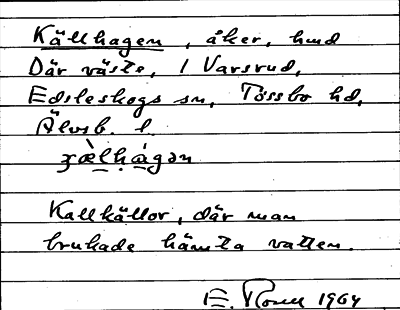 Källhagen, åker, hmd
Där väste, 1 Varsrud,
Edsleskogs sn, Tössbo hd,
Älvsb. l.
ʒæ̀lhágən
Kallkällor, där man
brukade hämta vatten.
E. 1964